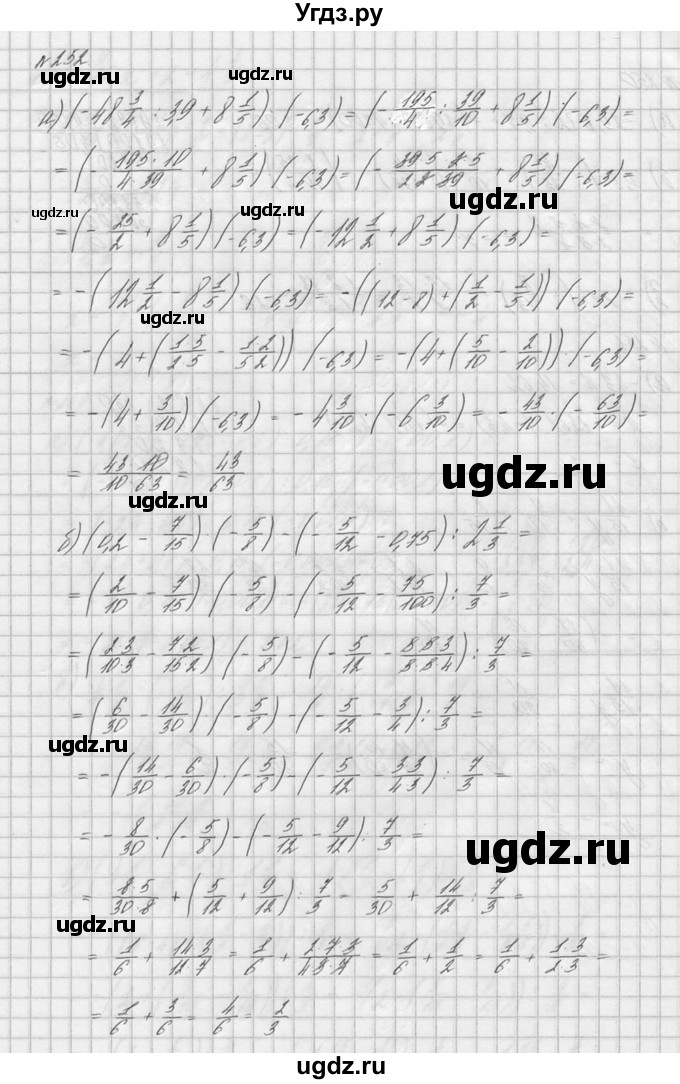 Угдз.ру
№252
ugdz.ru
ugdz.ru
а) (-48 3/4 : 3,9 + 8 1/5) · (-6,3) = (- 195/4 : 39/10 + 8 1/5) · (-6,3) =
= (- 195·10/4·39 + 8 1/5) · (-6,3) = (- 39·5·2·5/2·2·39 + 8 1/5) · (-6,3) =
ugdz.ru
ugdz.ru
ugdz.ru
= (- 25/2 + 8 1/5) · (-6,3) = (-12 1/2 + 8 1/5) · (-6,3) =
= -(12 1/2 - 8 1/5) · (-6,3) = -((12-8) + (1/2 - 1/5)) · (-6,3) =
ugdz.ru
= -(4 + (1·5/2·5 - 1·2/5·2)) · (-6,3) = -(4 + (5/10 - 2/10)) · (-6,3) =
= -(4 + 3/10) · (-6,3) = -4 3/10 · (-6 3/10) = - 43/10 · (- 63/10) =
ugdz.ru
= 43·10/10·63 = 43/63
ugdz.ru
б) (0,2 - 7/15) · (- 5/8) - (- 5/12 - 0,75) : 2 1/3 =
= (2/10 - 7/15) · (- 5/8) - (- 5/12 - 75/100) : 7/3 =
= (2·3/10·3 - 7·2/15·2) · (- 5/8) - (- 5/12 - 5·5·3/5·5·4) : 7/3 =
= (6/30 - 14/30) · (- 5/8) - (- 5/12 - 3/4) : 7/3 =
ugdz.ru
= -(14/30 - 6/30) · (- 5/8) - (- 5/12 - 3·3/4·3) : 7/3 =
= - 8/30 · (- 5/8) - (- 5/12 - 9/12) : 7/3 =
ugdz.ru
= 8·5/30·8 + (5/12 + 9/12) : 7/3 = 5/30 + 14/12 : 7/3 =
ugdz.ru
= 1/6 + 14·3/12·7 = 1/6 + 2·7·3/4·3·7 = 1/6 + 1/2 = 1/6 + 1·3/2·3 =
= 1/6 + 3/6 = 4/6 = 2/3
ugdz.ru